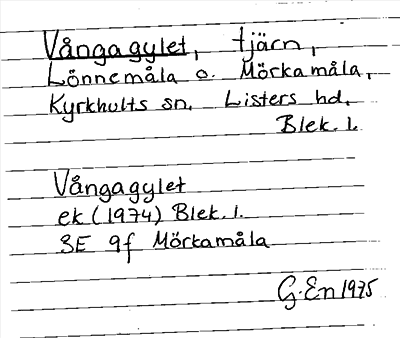 Vångagylet, tjärn,
Lönnemåla o. Mörkamåla,
Kyrkhults sn. Listers hd.
Blek. l.
Vångagylet
ek (1974) Blek. l.
3E 9f Mörkamåla
G. En 1975